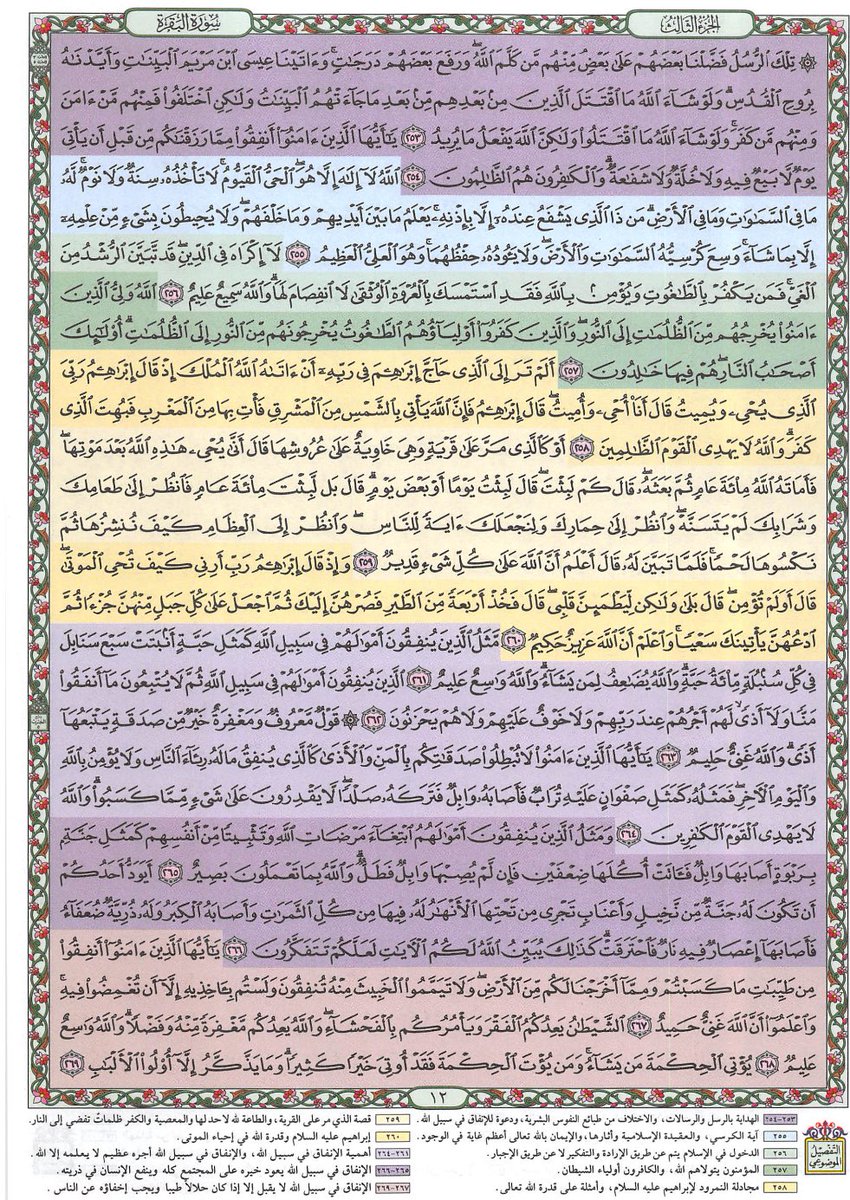 الجزء الثالث
سورة البقرة
۞ تِلْكَ الرُّسُلُ فَضَّلْنَا بَعْضَهُمْ عَلَىٰ بَعْضٍ مِّنْهُم مَّن كَلَّمَ اللَّهُ وَرَفَعَ بَعْضَهُمْ دَرَجَاتٍ وَءَاتَيْنَا عِيسَى ابْنَ مَرْيَمَ الْبَيِّنَاتِ وَأَيَّدْنَاهُ
بِرُوحِ الْقُدُسِ وَلَوْ شَاءَ اللَّهُ مَا اقْتَتَلَ الَّذِينَ مِنْ بَعْدِهِم مِّنْ بَعْدِ مَا جَاءَتْهُمُ الْبَيِّنَاتُ وَلَٰكِنِ اخْتَلَفُوا فَمِنْهُم مَّنْ ءَامَنَ
وَمِنْهُم مَّن كَفَرَ وَلَوْ شَاءَ اللَّهُ مَا اقْتَتَلُوا وَلَٰكِنَّ اللَّهَ يَفْعَلُ مَا يُرِيدُ ٢٥٣ يَا أَيُّهَا الَّذِينَ ءَامَنُوا أَنفِقُوا مِمَّا رَزَقْنَاكُم مِّن قَبْلِ أَن يَأْتِيَ
يَوْمٌ لَّا بَيْعٌ فِيهِ وَلَا خُلَّةٌ وَلَا شَفَاعَةٌ وَالْكَافِرُونَ هُمُ الظَّالِمُونَ ٢٥٤ اللَّهُ لَا إِلَٰهَ إِلَّا هُوَ الْحَيُّ الْقَيُّومُ لَا تَأْخُذُهُ سِنَةٌ وَلَا نَوْمٌ لَّهُ
مَا فِي السَّمَاوَاتِ وَمَا فِي الْأَرْضِ مَن ذَا الَّذِي يَشْفَعُ عِندَهُ إِلَّا بِإِذْنِهِ يَعْلَمُ مَا بَيْنَ أَيْدِيهِمْ وَمَا خَلْفَهُمْ وَلَا يُحِيطُونَ بِشَيْءٍ مِّنْ عِلْمِهِ
إِلَّا بِمَا شَاءَ وَسِعَ كُرْسِيُّهُ السَّمَاوَاتِ وَالْأَرْضَ وَلَا يَئُودُهُ حِفْظُهُمَا وَهُوَ الْعَلِيُّ الْعَظِيمُ ٢٥٥ لَا إِكْرَاهَ فِي الدِّينِ قَد تَّبَيَّنَ الرُّشْدُ مِنَ
الْغَيِّ فَمَن يَكْفُرْ بِالطَّاغُوتِ وَيُؤْمِنْ بِاللَّهِ فَقَدِ اسْتَمْسَكَ بِالْعُرْوَةِ الْوُثْقَىٰ لَا انفِصَامَ لَهَا وَاللَّهُ سَمِيعٌ عَلِيمٌ ٢٥٦ اللَّهُ وَلِيُّ الَّذِينَ
ءَامَنُوا يُخْرِجُهُم مِّنَ الظُّلُمَاتِ إِلَى النُّورِ وَالَّذِينَ كَفَرُوا أَوْلِيَاؤُهُمُ الطَّاغُوتُ يُخْرِجُونَهُم مِّنَ النُّورِ إِلَى الظُّلُمَاتِ أُولَٰئِكَ
أَصْحَابُ النَّارِ هُمْ فِيهَا خَالِدُونَ ٢٥٧ أَلَمْ تَرَ إِلَى الَّذِي حَاجَّ إِبْرَاهِيمَ فِي رَبِّهِ أَنْ ءَاتَاهُ اللَّهُ الْمُلْكَ إِذْ قَالَ إِبْرَاهِيمُ رَبِّيَ
الَّذِي يُحْيِي وَيُمِيتُ قَالَ أَنَا أُحْيِي وَأُمِيتُ قَالَ إِبْرَاهِيمُ فَإِنَّ اللَّهَ يَأْتِي بِالشَّمْسِ مِنَ الْمَشْرِقِ فَأْتِ بِهَا مِنَ الْمَغْرِبِ فَبُهِتَ الَّذِي
كَفَرَ وَاللَّهُ لَا يَهْدِي الْقَوْمَ الظَّالِمِينَ ٢٥٨ أَوْ كَالَّذِي مَرَّ عَلَىٰ قَرْيَةٍ وَهِيَ خَاوِيَةٌ عَلَىٰ عُرُوشِهَا قَالَ أَنَّىٰ يُحْيِي هَٰذِهِ اللَّهُ بَعْدَ مَوْتِهَا
فَأَمَاتَهُ اللَّهُ مِائَةَ عَامٍ ثُمَّ بَعَثَهُ قَالَ كَمْ لَبِثْتَ قَالَ لَبِثْتُ يَوْمًا أَوْ بَعْضَ يَوْمٍ قَالَ بَل لَّبِثْتَ مِائَةَ عَامٍ فَانظُرْ إِلَىٰ طَعَامِكَ
وَشَرَابِكَ لَمْ يَتَسَنَّهْ وَانظُرْ إِلَىٰ حِمَارِكَ وَلِنَجْعَلَكَ ءَايَةً لِّلنَّاسِ وَانظُرْ إِلَى الْعِظَامِ كَيْفَ نُنشِزُهَا ثُمَّ
نَكْسُوهَا لَحْمًا فَلَمَّا تَبَيَّنَ لَهُ قَالَ أَعْلَمُ أَنَّ اللَّهَ عَلَىٰ كُلِّ شَيْءٍ قَدِيرٌ ٢٥٩ وَإِذْ قَالَ إِبْرَاهِيمُ رَبِّ أَرِنِي كَيْفَ تُحْيِي الْمَوْتَىٰ
قَالَ أَوَلَمْ تُؤْمِن قَالَ بَلَىٰ وَلَٰكِن لِّيَطْمَئِنَّ قَلْبِي قَالَ فَخُذْ أَرْبَعَةً مِّنَ الطَّيْرِ فَصُرْهُنَّ إِلَيْكَ ثُمَّ اجْعَلْ عَلَىٰ كُلِّ جَبَلٍ مِّنْهُنَّ جُزْءًا ثُمَّ
ادْعُهُنَّ يَأْتِينَكَ سَعْيًا وَاعْلَمْ أَنَّ اللَّهَ عَزِيزٌ حَكِيمٌ ٢٦٠ مَّثَلُ الَّذِينَ يُنفِقُونَ أَمْوَالَهُمْ فِي سَبِيلِ اللَّهِ كَمَثَلِ حَبَّةٍ أَنبَتَتْ سَبْعَ سَنَابِلَ
فِي كُلِّ سُنبُلَةٍ مِّائَةُ حَبَّةٍ وَاللَّهُ يُضَاعِفُ لِمَن يَشَاءُ وَاللَّهُ وَاسِعٌ عَلِيمٌ ٢٦١ الَّذِينَ يُنفِقُونَ أَمْوَالَهُمْ فِي سَبِيلِ اللَّهِ ثُمَّ لَا يُتْبِعُونَ مَا أَنفَقُوا
مَنًّا وَلَا أَذًى لَّهُمْ أَجْرُهُمْ عِندَ رَبِّهِمْ وَلَا خَوْفٌ عَلَيْهِمْ وَلَا هُمْ يَحْزَنُونَ ٢٦٢ ۞ قَوْلٌ مَّعْرُوفٌ وَمَغْفِرَةٌ خَيْرٌ مِّن صَدَقَةٍ يَتْبَعُهَا
أَذًى وَاللَّهُ غَنِيٌّ حَلِيمٌ ٢٦٣ يَا أَيُّهَا الَّذِينَ ءَامَنُوا لَا تُبْطِلُوا صَدَقَاتِكُم بِالْمَنِّ وَالْأَذَىٰ كَالَّذِي يُنفِقُ مَالَهُ رِئَاءَ النَّاسِ وَلَا يُؤْمِنُ بِاللَّهِ
وَالْيَوْمِ الْآخِرِ فَمَثَلُهُ كَمَثَلِ صَفْوَانٍ عَلَيْهِ تُرَابٌ فَأَصَابَهُ وَابِلٌ فَتَرَكَهُ صَلْدًا لَّا يَقْدِرُونَ عَلَىٰ شَيْءٍ مِّمَّا كَسَبُوا وَاللَّهُ
لَا يَهْدِي الْقَوْمَ الْكَافِرِينَ ٢٦٤ وَمَثَلُ الَّذِينَ يُنفِقُونَ أَمْوَالَهُمُ ابْتِغَاءَ مَرْضَاتِ اللَّهِ وَتَثْبِيتًا مِّنْ أَنفُسِهِمْ كَمَثَلِ جَنَّةٍ
بِرَبْوَةٍ أَصَابَهَا وَابِلٌ فَآتَتْ أُكُلَهَا ضِعْفَيْنِ فَإِن لَّمْ يُصِبْهَا وَابِلٌ فَطَلٌّ وَاللَّهُ بِمَا تَعْمَلُونَ بَصِيرٌ ٢٦٥ أَيَوَدُّ أَحَدُكُمْ
أَن تَكُونَ لَهُ جَنَّةٌ مِّن نَّخِيلٍ وَأَعْنَابٍ تَجْرِي مِن تَحْتِهَا الْأَنْهَارُ لَهُ فِيهَا مِن كُلِّ الثَّمَرَاتِ وَأَصَابَهُ الْكِبَرُ وَلَهُ ذُرِّيَّةٌ ضُعَفَاءُ
فَأَصَابَهَا إِعْصَارٌ فِيهِ نَارٌ فَاحْتَرَقَتْ كَذَٰلِكَ يُبَيِّنُ اللَّهُ لَكُمُ الْآيَاتِ لَعَلَّكُمْ تَتَفَكَّرُونَ ٢٦٦ يَا أَيُّهَا الَّذِينَ ءَامَنُوا أَنفِقُوا
مِن طَيِّبَاتِ مَا كَسَبْتُمْ وَمِمَّا أَخْرَجْنَا لَكُم مِّنَ الْأَرْضِ وَلَا تَيَمَّمُوا الْخَبِيثَ مِنْهُ تُنفِقُونَ وَلَسْتُم بِآخِذِيهِ إِلَّا أَن تُغْمِضُوا فِيهِ
وَاعْلَمُوا أَنَّ اللَّهَ غَنِيٌّ حَمِيدٌ ٢٦٧ الشَّيْطَانُ يَعِدُكُمُ الْفَقْرَ وَيَأْمُرُكُم بِالْفَحْشَاءِ وَاللَّهُ يَعِدُكُم مَّغْفِرَةً مِّنْهُ وَفَضْلًا وَاللَّهُ وَاسِعٌ
عَلِيمٌ ٢٦٨ يُؤْتِي الْحِكْمَةَ مَن يَشَاءُ وَمَن يُؤْتَ الْحِكْمَةَ فَقَدْ أُوتِيَ خَيْرًا كَثِيرًا وَمَا يَذَّكَّرُ إِلَّا أُولُو الْأَلْبَابِ ٢٦٩
١٢
التفصيل الموضوعي
٢٥٣-٢٥٤ الهداية بالرسل والرسالات، والاختلاف من طبائع النفوس البشرية، ودعوة للإنفاق في سبيل الله.
٢٥٥ آية الكرسي، والعقيدة الإسلامية وآثارها، والإيمان بالله تعالى أعظم غاية في الوجود.
٢٥٦ الدخول في الإسلام يتم عن طريق الإرادة والتفكير لا عن طريق الإجبار.
٢٥٧ المؤمنون يتولاهم الله، والكافرون أولياء الشيطان.
٢٥٨ مجادلة النمرود لإبراهيم عليه السلام، وأمثلة على قدرة الله تعالى.
٢٥٩ قصة الذي مر على القرية، والطاعة لله لاحد لها والمعصية والكفر ظلمات تفضي إلى النار.
٢٦٠ إبراهيم عليه السلام وقدرة الله في إحياء الموتى.
٢٦١-٢٦٤ أهمية الإنفاق في سبيل الله، والإنفاق في سبيل الله أجره عظيم لا يعلمه إلا الله.
٢٦٥-٢٦٦ الإنفاق في سبيل الله يعود خيره على المجتمع كله وينفع الإنسان في ذريته.
٢٦٧-٢٦٩ الإنفاق في سبيل الله لا يقبل إلا إذا كان حلالاً طيبا ويجب إخفاؤه عن الناس.